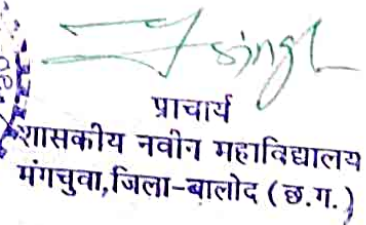 singh
प्राचार्य
शासकीय नवीन महाविद्यालय
मंगचुवा,जिला-बालोद (छ.ग.)